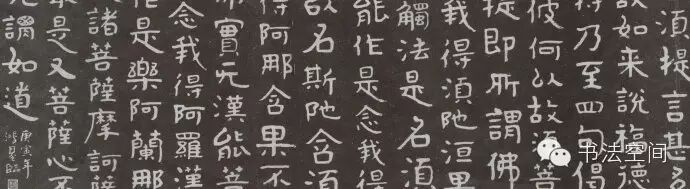 須提言甚多
故如来說福德
乃至四句偈
彼何以故須菩
提即所謂佛
我得須陁洹果
觸法是名須
能作是念我得
故名斯陁含須
得阿那含果不
實无漢能菩
念我得阿羅漢
作是樂阿蘭那
諸菩薩摩訶薩
是又菩薩心不
謂如道
庚寅年
臨
书法空间